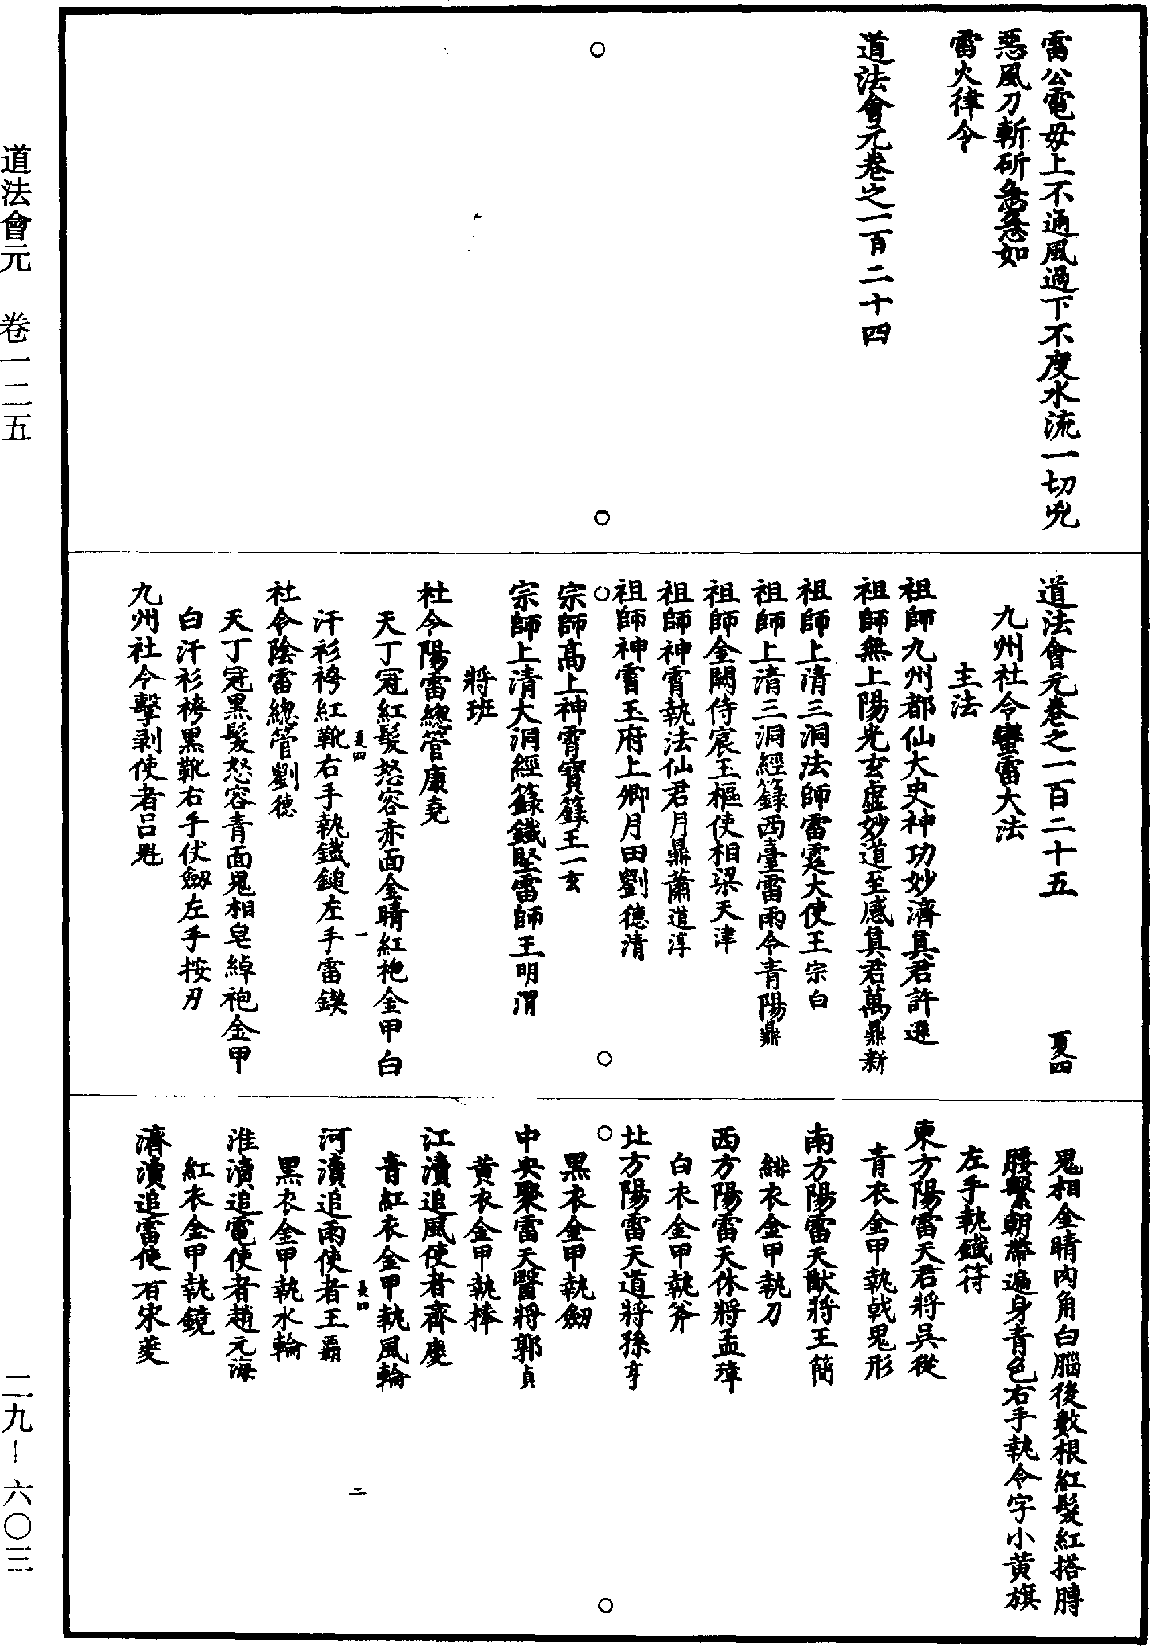 雷公電母上不通風過下不度水流一切兇
惡風刀斬斫急急如
雷火律令
道法會元卷之一百二十四
道法會元卷之一百二十五 夏四
九州社令蠻雷大法
主法
祖師九州都仙大史神功妙濟真君許遜
祖師無上陽光玄虛妙道至感真君萬鼎新
祖師上清三洞法師雷霆大使王宗白
祖師上清三洞經籙西臺雷雨令青陽鼎
祖師金闕侍宸玉樞使相梁天津
祖師神霄執法仙君月鼎蕭道淳
祖師神霄玉府上卿月田劉德清
宗師高上神霄寶籙王一玄
宗師上清大洞經籙鐵壁雷師王明渭
將班
社令陽雷總管康堯
天丁冠紅髮怒容赤面金睛紅袍金甲白
汗衫袴紅靴右手執鐵鎚左手雷鍥
社令陰雷總管劉德
天丁冠黑髮怒容青面鬼相皂綽袍金甲
白汗衫袴黑靴右手仗劒左手按刃
九州社令擊剥使者呂魁
夏四
一
鬼相金睛肉角白腦後數根紅髮紅搭膊
腰繫朝帶遍身青色右手執令字小黄旗
左手執鐵符
東方陽雷天君將吳從
青衣金甲執戟鬼形
南方陽雷天猷將王簡
緋衣金甲執刀
西方陽雷天休將孟璋
白衣金甲執斧
北方陽雷天道將孫亨
黑衣金甲執劒
中央聚雷天醫將郭貞
黄衣金甲執棒
江瀆追風使者齊慶
青紅衣金甲執風輪
河瀆追雨使者王霸
黑衣金甲執水輪
淮瀆追電使者趙元海
紅衣金甲執鏡
濟瀆追雷使者宋菱
夏四
二
道法會元 卷一二五
二九-六〇三